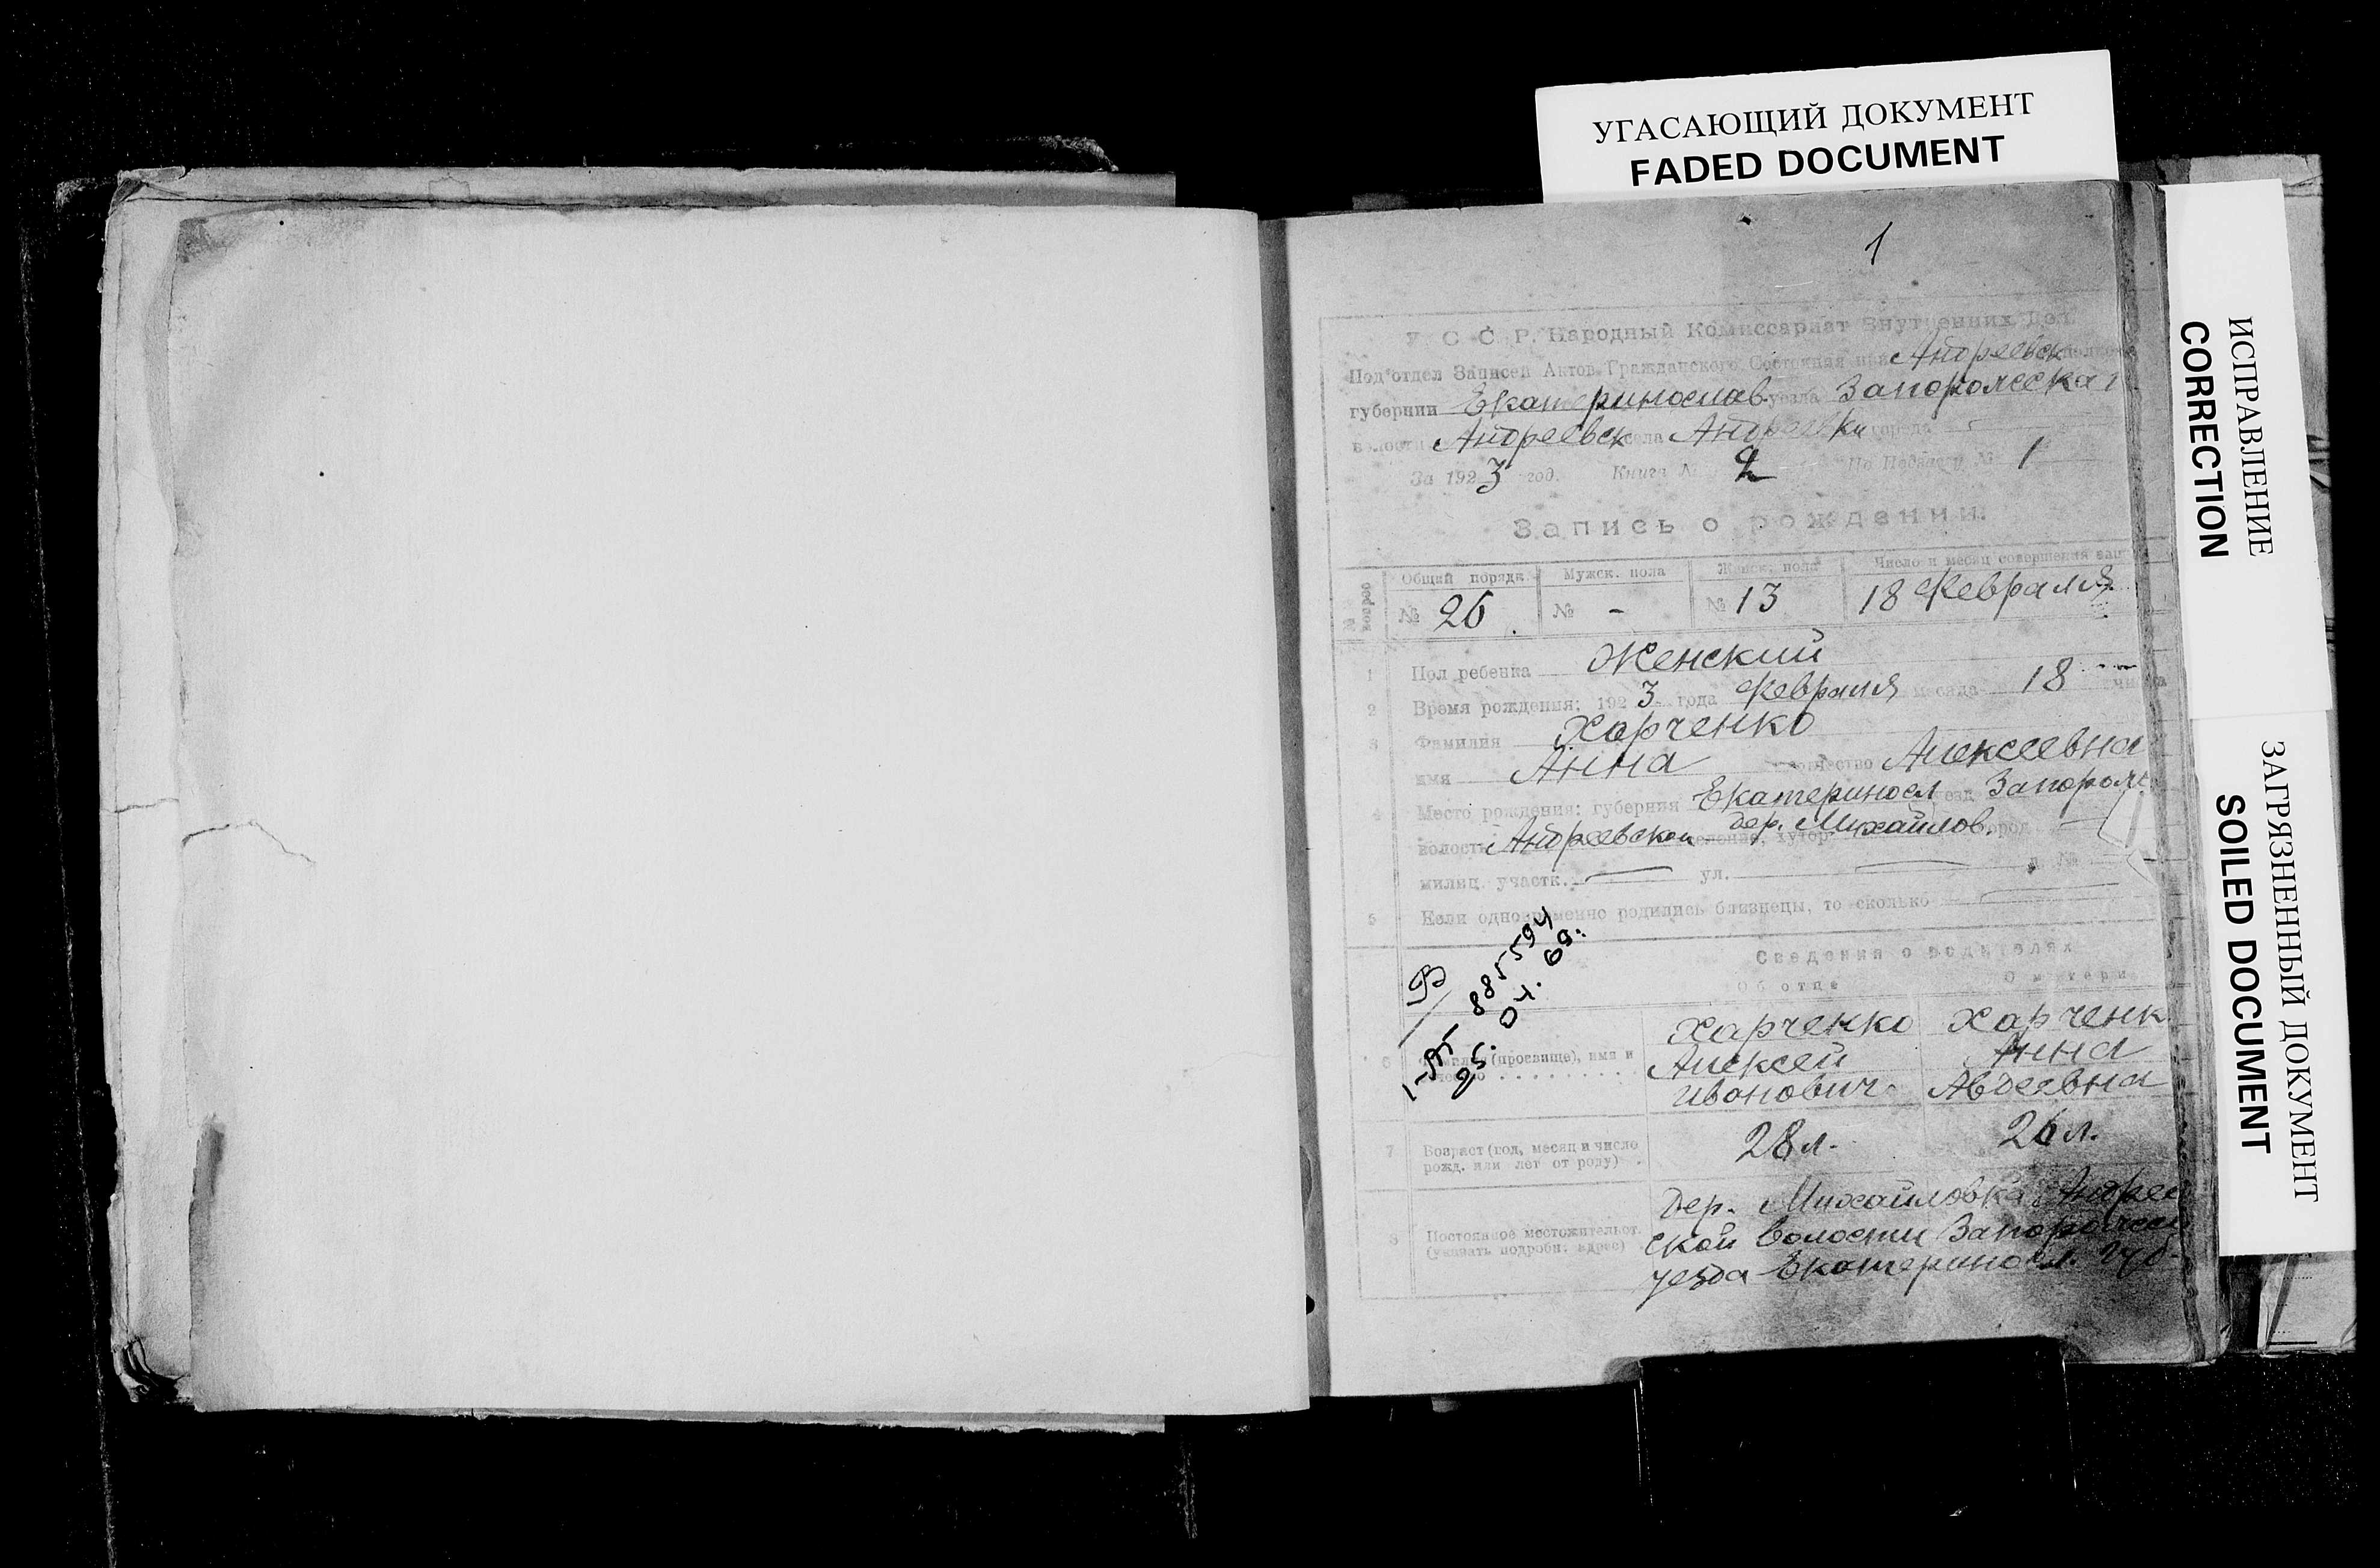 УГАСАЮЩИЙ ДОКУМЕНТ
FADED DOCUMENT
1
У С С Р. Народный Комиссариат Внутренних Дел
Под'отдел Записей Актов Гражданского Состояния при Андреевск
губернии Екатеринослав уезда Запорожска
волости Андреевск села Андреевки города
За 1923 год. Книга № 2 По Подвсегр № 1
Запись о рождении.
№ вопрос Общий порядк Мужск. пола Женск. пола Число и месяц совершения зап
№ 26 № - № 13 18 Февраля
1 Пол ребенка Женский
2 Время рождения: 1923 года Февраля месяца 18 числа
3 Фамилия Харченко
имя Анна отчество Алексеевна
4 Место рождения: губерния Екатериносл уезд Запорож
волость Андреевской селение, хутор дер. Михайлов. город
милиц. участк. ул. д. №
5 Если одновременно родились близнецы, то сколько
Сведения о родителях
Об отце О матери
6 (прозвище), имя и
Харченко Харченк
Алексей Анна
Иванович Авдеевна
7 Возраст (год, месяц и число
рожд. или лет от роду) .
28 л. 26 л.
8 Постоянное местожительст.
(указать подробн. адрес)
Дер. Михайловка Андрее
ской волости Запорожск
уезда Екатериносл. губ-
885594
25. 04. 69.
ИСПРАВЛЕНИЕ
CORRECTION
ЗАГРЯЗНЕННЫЙ ДОКУМЕНТ
SOILED DOCUMENT